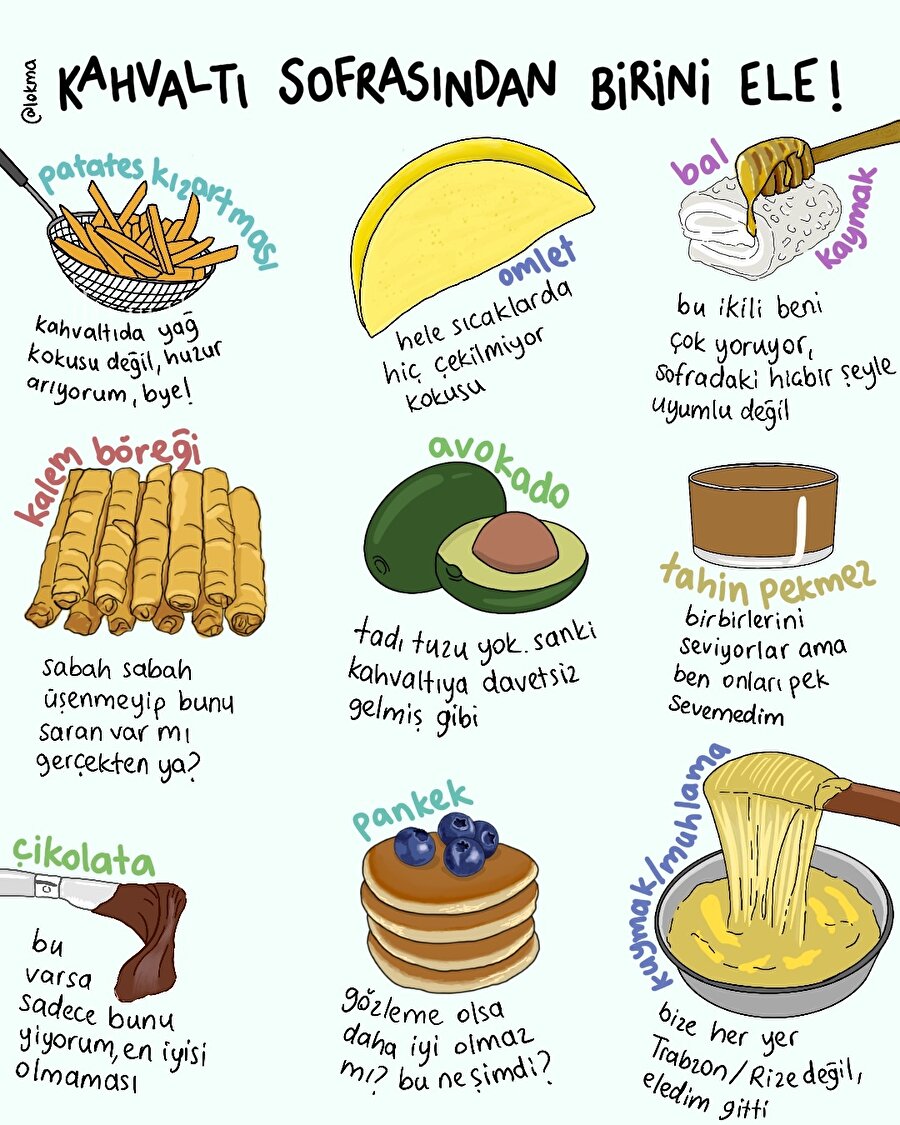 @lokma
KAHVALTI SOFRASINDAN BİRİNİ ELE!
patates kızartması
kahvaltıda yağ
kokusu değil, huzur
arıyorum, bye!
omlet
hele sıcaklarda
hiç çekilmiyor
kokusu
bal
kaymak
bu ikili beni
çok yoruyor,
sofradaki hiçbir şeyle
uyumlu değil
kalem böreği
sabah sabah
üşenmeyip bunu
saran var mı
gerçekten ya?
avokado
tadı tuzu yok. sanki
kahvaltıya davetsiz
gelmiş gibi
tahin pekmez
birbirlerini
seviyorlar ama
ben onları pek
sevemedim
çikolata
bu
varsa
sadece bunu
yiyorum, en iyisi
olmaması
pankek
gözleme olsa
daha iyi olmaz
mı? bu ne şimdi?
kuymak/muhlama
bize her yer
Trabzon/Rize değil,
eledim gitti